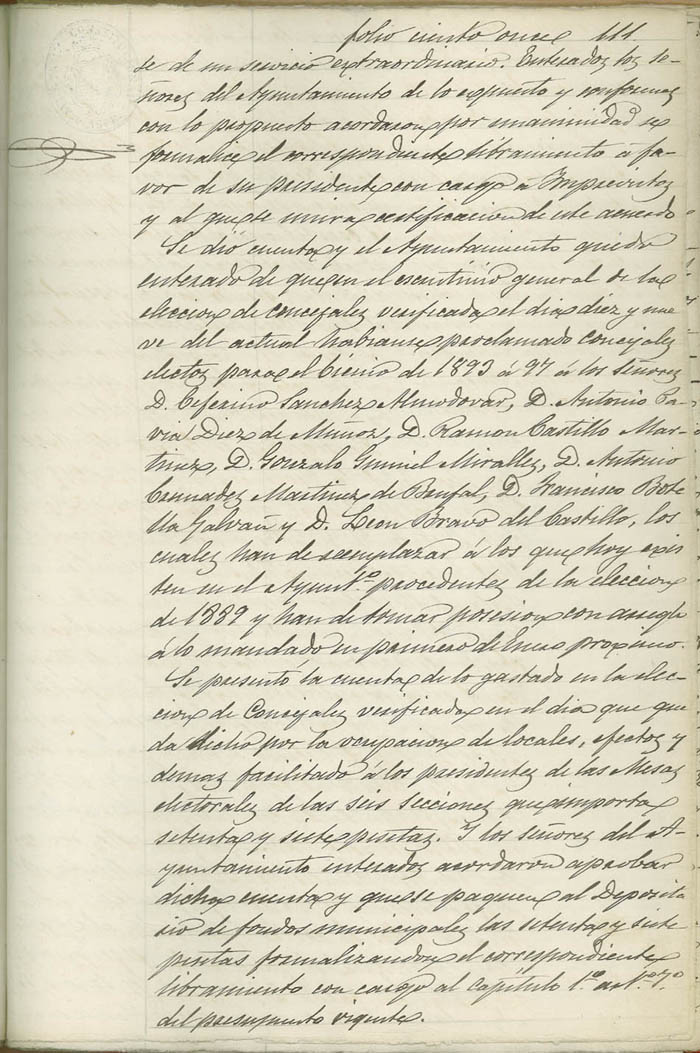 folio ciento once 111
se de un servicio extraordinario. Enterados los se-
ñores del Ayuntamiento de lo expuesto y conformes
con lo propuesto acordaron por unanimidad se
formalice el correspondiente libramiento á fa-
vor de su presidente con cargo á Imprevistos
y al que se unira certificacion de este acuerdo
Se dió cuenta y el Ayuntamiento quedo
enterado de que en el escrutinio general de la
eleccion de Concejales verificada el dia diez y nue
ve del actual habianse proclamado concejales
electos para el bienio de 1893 á 97 á los señores
D. Ceferino Sanchez Almodovar, D. Antonio Ra-
via Diez de Muñoz, D. Ramon Castillo Mar-
tinez, D. Gonzalo Gumiel Miralles, D. Antonio
Martinez de Banfal, D. Francisco Bote
lla Galvañ y D. Leon Bravo del Castillo, los
cuales han de reemplazar á los que hoy exis
ten en el Ayunt.º procedentes de la eleccion
de 1889 y han de tomar posesion con arreglo
á lo mandado en primero de Enero proximo.
Se presentó la cuenta de lo gastado en la elec-
cion de Concejales verificada en el dia que que
da dicho por la ocupacion de locales, efectos y
demas facilitado á los presidentes de las Mesas
electorales de las seis secciones que importa
setenta y siete pesetas. Y los señores del A-
yuntamiento enterados acordaron aprobar
dicha cuenta y que se paguen al Deposita
rio de fondos municipales las setenta y siete
pesetas formalizandose el correspondiente
libramiento con cargo al Capítulo 1.º art.º 7.º
del presupuesto vigente.